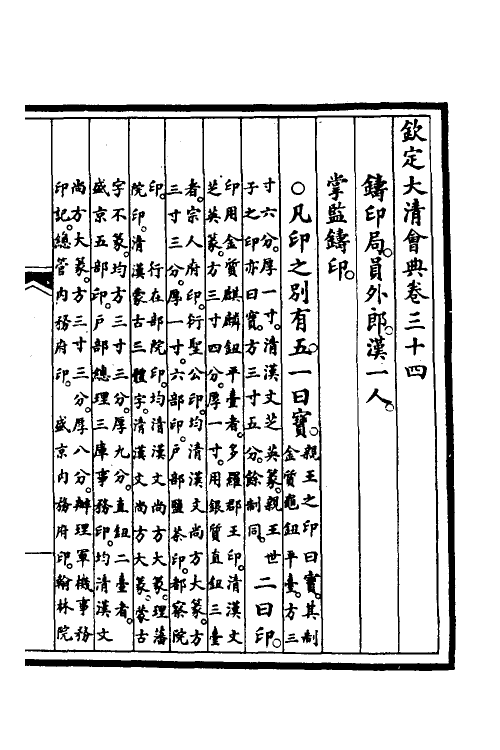 欽定大清會典卷三十四
鑄印局。員外郎。漢一人。
掌監鑄印。
○凡印之別有五。一曰寶。親王之印曰寶。其制
金質龜鈕平臺。方三
寸六分。厚一寸。清漢文芝英篆。親王世
子之印亦曰寶。方三寸五分。餘制同。二曰印。
印用金質麒麟鈕平臺者。多羅郡王印。清漢文
芝英篆。方三寸四分。厚一寸。用銀質直鈕三臺
者。宗人府印。衍聖公印。均清漢文尚方大篆。方
三寸三分。厚一寸。六部印。戶部鹽茶印。都察院
印。 行在部院印。均清漢文尚方大篆。理藩
院印。清漢蒙古三體字。清漢文尚方大篆。蒙古
字不篆。均方三寸三分。厚九分。直鈕二臺者。
盛京五部印。戶部總理三庫事務印。均清漢文
尚方大篆。方三寸三分。厚八分。辦理軍機事務
印記。總管內務府印。 盛京內務府印。翰林院